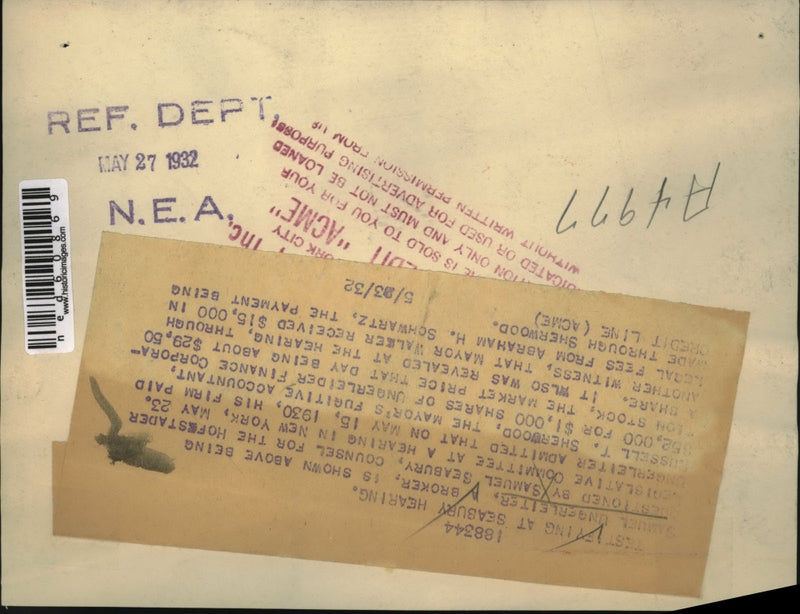 REF. DEPT.
MAY 27 1932
N.E.A.
A4977
Inc.
YORK CITY
"ACME"
IS SOLD TO YOU FOR YOUR
ONLY AND MUST NOT BE LOANED
OR USED FOR ADVERTISING PURPOSES
WITHOUT WRITTEN PERMISSION FROM US
www.historicimages.com
ned60869
188344
TESTIFYING AT SEABURY HEARING.
SAMUEL UNGERLEITER, BROKER, IS SHOWN ABOVE BEING
QUESTIONED BY SAMUEL SEABURY, COUNSEL FOR THE HOFSTADER
LEGISLATIVE COMMITTEE AT A HEARING IN NEW YORK, MAY 23.
UNGERLEITER ADMITTED THAT ON MAY 15, 1930, HIS FIRM PAID
RUSSELL T. SHERWOOD, THE MAYOR'S FUGITIVE ACCOUNTANT,
$52,000 FOR $1,000 SHARES OF UNGERLEIDER FINANCE CORPORA-
TION STOCK, THE MARKET PRICE THAT DAY BEING ABOUT $29,50
A SHARE. IT WLSO WAS REVEALED AT THE HEARING, THROUGH
ANOTHER WITNESS, THAT MAYOR WALKER RECEIVED $15,000 IN
LEGAL FEES FROM ABRAHAM H. SCHWARTZ, THE PAYMENT BEING
MADE THROUGH SHERWOOD.
CREDIT LINE (ACME) 5/23/32